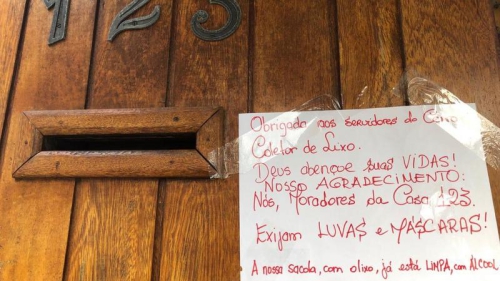 123
Obrigado aos servidores do Carro
Coletor de Lixo.
Deus abençoe suas VIDAS!
Nosso AGRADECIMENTO:
Nós, Moradores da Casa 123.
Exijam LUVAS e MÁSCARAS!
A nossa sacola, com o lixo, já está LIMPA, com ÁLCOOL